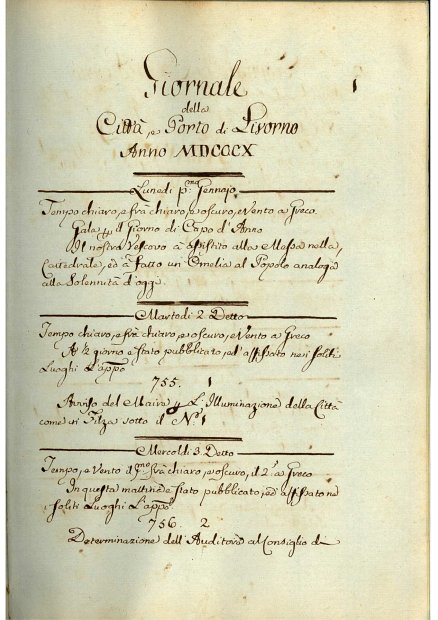 Giornale
1
della
Città, e Porto di Livorno
Anno MDCCCX
Lunedi p.mo Gennajo
Tempo chiaro, e frà chiaro, e oscuro, e Vento a Greco.
Gala p il Giorno di Capo d'Anno
Il nostro Vescovo à assistito alla Messa nella
Cattedrale, ed à fatto un Omelia al Popolo analoga
alla Solennità d'oggi.
Martedi 2 Detto
Tempo chiaro, e frà chiaro, e oscuro, e Vento a Greco
A ½ giorno è stato pubblicato, ed affissato nei soliti
Luoghi L'appo
755. 1
Avviso del Maire p L'Illuminazione della Città
come in Filza sotto il N.o 1
Mercoldi 3 Detto
Tempo, e Vento il p.mo frà chiaro, e oscuro, il 2.o a Greco
In questa mattina è stato pubblicato, ed affissato nei
soliti Luoghi L'appo
756. 2
Determinazione dell'Auditore al Consiglio di